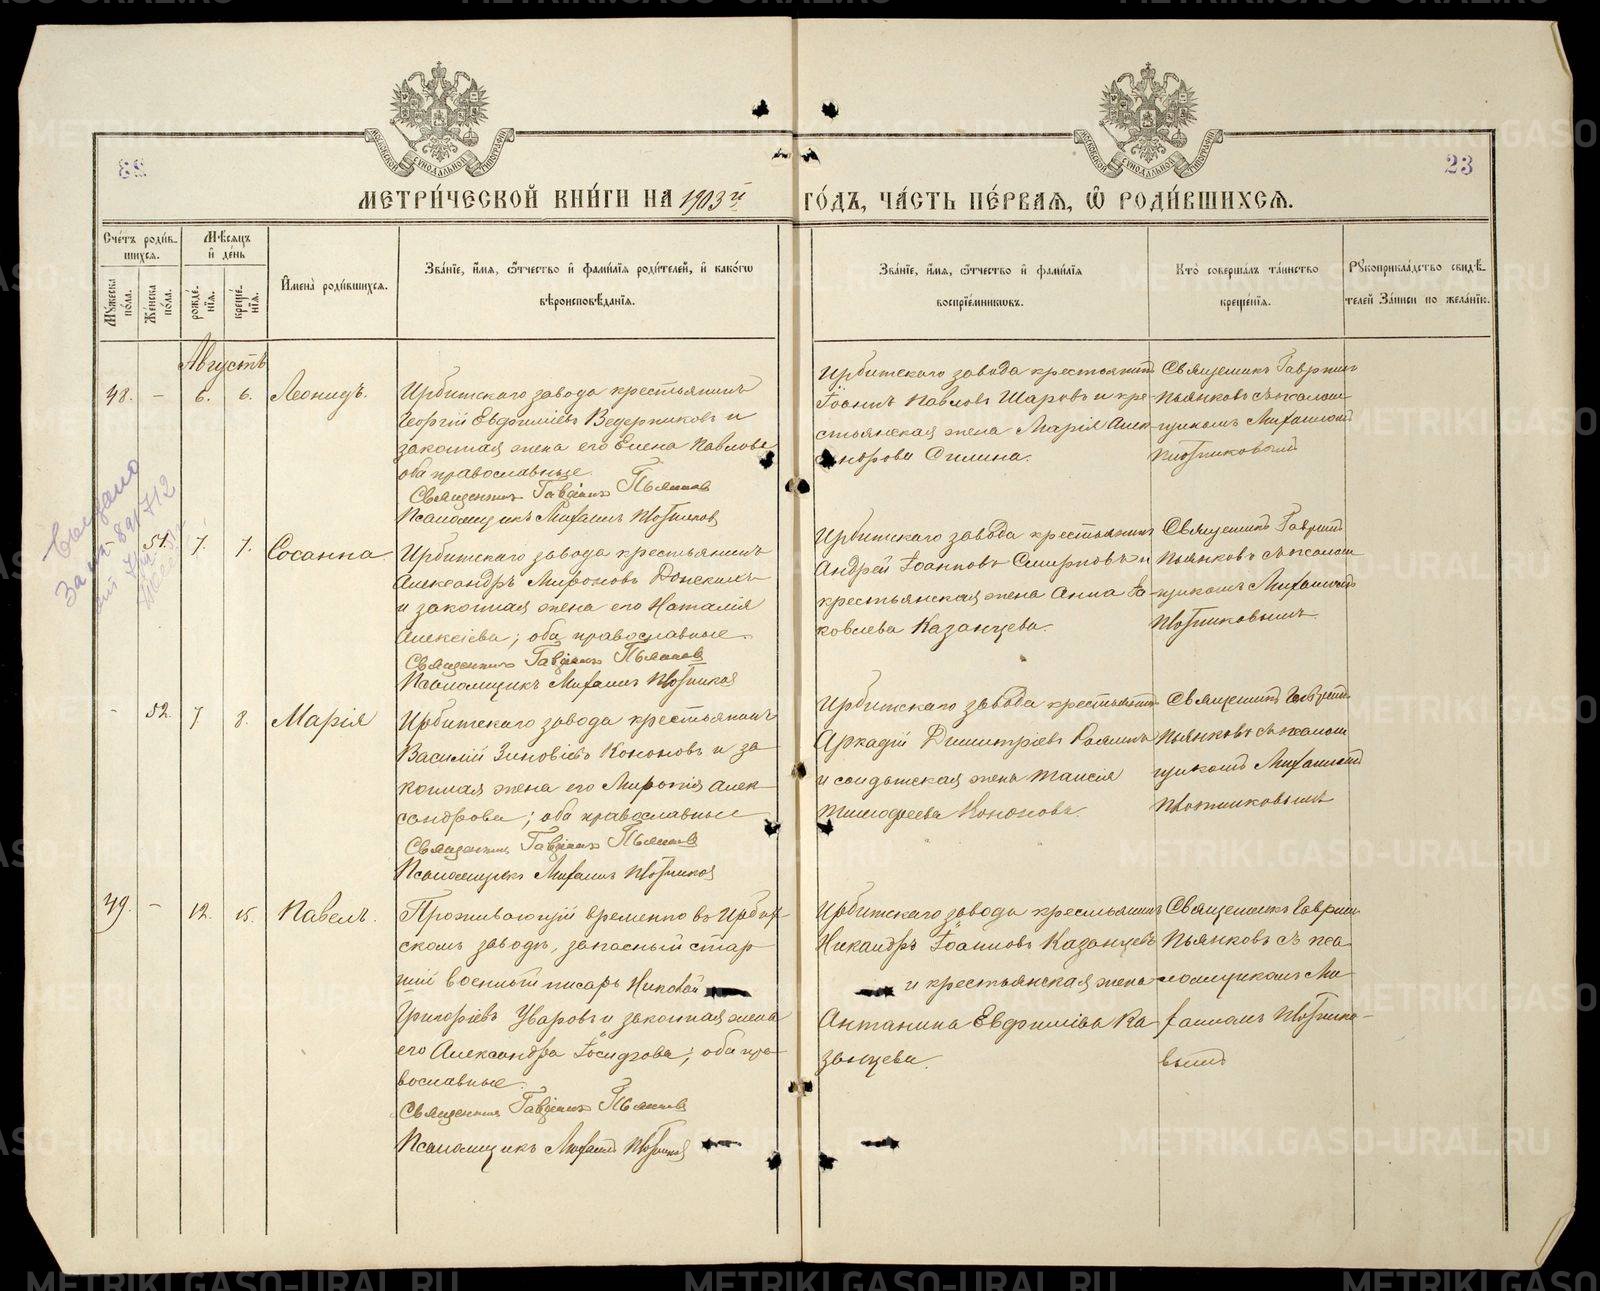 МЕТРИ́ЧЕСКОЙ КНИ́ГИ НА 1903й ГО́ДЪ, ЧА́СТЬ ПЕ́РВАЯ, Ѿ РОДИ́ВШИХСѦ.
23
Сче́тъ роди́в-
шихсѧ.
Мꙋжеска
по́ла.
Же́нска
по́ла.
Мѣ́сяцъ
и де́нь
рожде́-
нїѧ.
креще́-
нїѧ.
Имена̀ роди́вшихсѧ.
Зва́нїе, и́мѧ, ѻ́тчество и фами́лїѧ роди́телей, и како́гѡ
вѣроисповѣ́данїѧ.
Зва́нїе, и́мѧ, ѻ́тчество и фами́лїѧ
воспрїе́мниковъ.
Кто̀ соверша́лъ та́инство
креще́нїѧ.
Рꙋкоприкла́дство свидѣ́-
телей за́писи по жела́нїю.
Августъ
48. - 6. 6. Леонидъ.
Ирбитскаго завода крестьянинъ
Георгій Евфиміевъ Ведерниковъ и
законная жена его Елена Павлова
оба православные
Священникъ Гавріилъ Пьянков
Псаломщикъ Михаилъ Плотников
Ирбитскаго завода крестьянинъ
Іоаннъ Павловъ Шаровъ и кре-
стьянская жена Марія Алек-
андрова Силина.
Священникъ Гавріилъ
Пьянковъ съ псалом-
щикомъ Михаиломъ
Плотниковымъ
Выдано
51. 7. 7. Сосанна
Ирбитскаго завода крестьянинъ
Александръ Мироновъ
и законная жена его Наталія
Алексіева; оба православные.
Священникъ Гавріилъ Пьянков
Псаломщикъ Михаилъ Плотников
Ирбитскаго завода крестьянинъ
Андрей Іоанновъ Смирновъ и
крестьянская жена Анна Іа-
ковлева Казанцева.
Священникъ Гавріилъ
Пьянковъ съ псалом-
щикомъ Михаиломъ
Плотниковымъ
- 52. 7 8. Марія
Ирбитскаго завода крестьянинъ
Василій Зиновіевъ Кононовъ и за-
конная жена его Миропія Алек-
сандрова; оба православные
Священникъ Гавріилъ Пьянков
Псаломщикъ Михаилъ Плотников
Ирбитскаго завода крестьянинъ
Аркадій Димитріевъ
и солдатская жена Таисія
Тимофеева Кононова.
Священникъ Гавріилъ
Пьянковъ съ псалом-
щикомъ Михаиломъ
Плотниковымъ
49. - 12. 15. Павелъ.
Проживающій временно въ Ирбит-
скомъ заводѣ, запасный стар-
шій военный писарь Николай
Григоріевъ Уваровъ и законная жена
его Александра Іосифова; оба пра-
вославные.
Священникъ Гавріилъ Пьянков
Псаломщикъ Михаилъ Плотников
Ирбитскаго завода крестьянинъ
Никандръ Іоанновъ Казанцевъ
и крестьянская жена
Антонина Евфиміева Ка-
занцева.
Священникъ Гавріилъ
Пьянковъ съ пса-
ломщикомъ Ми-
хаиломъ Плотнико-
вымъ